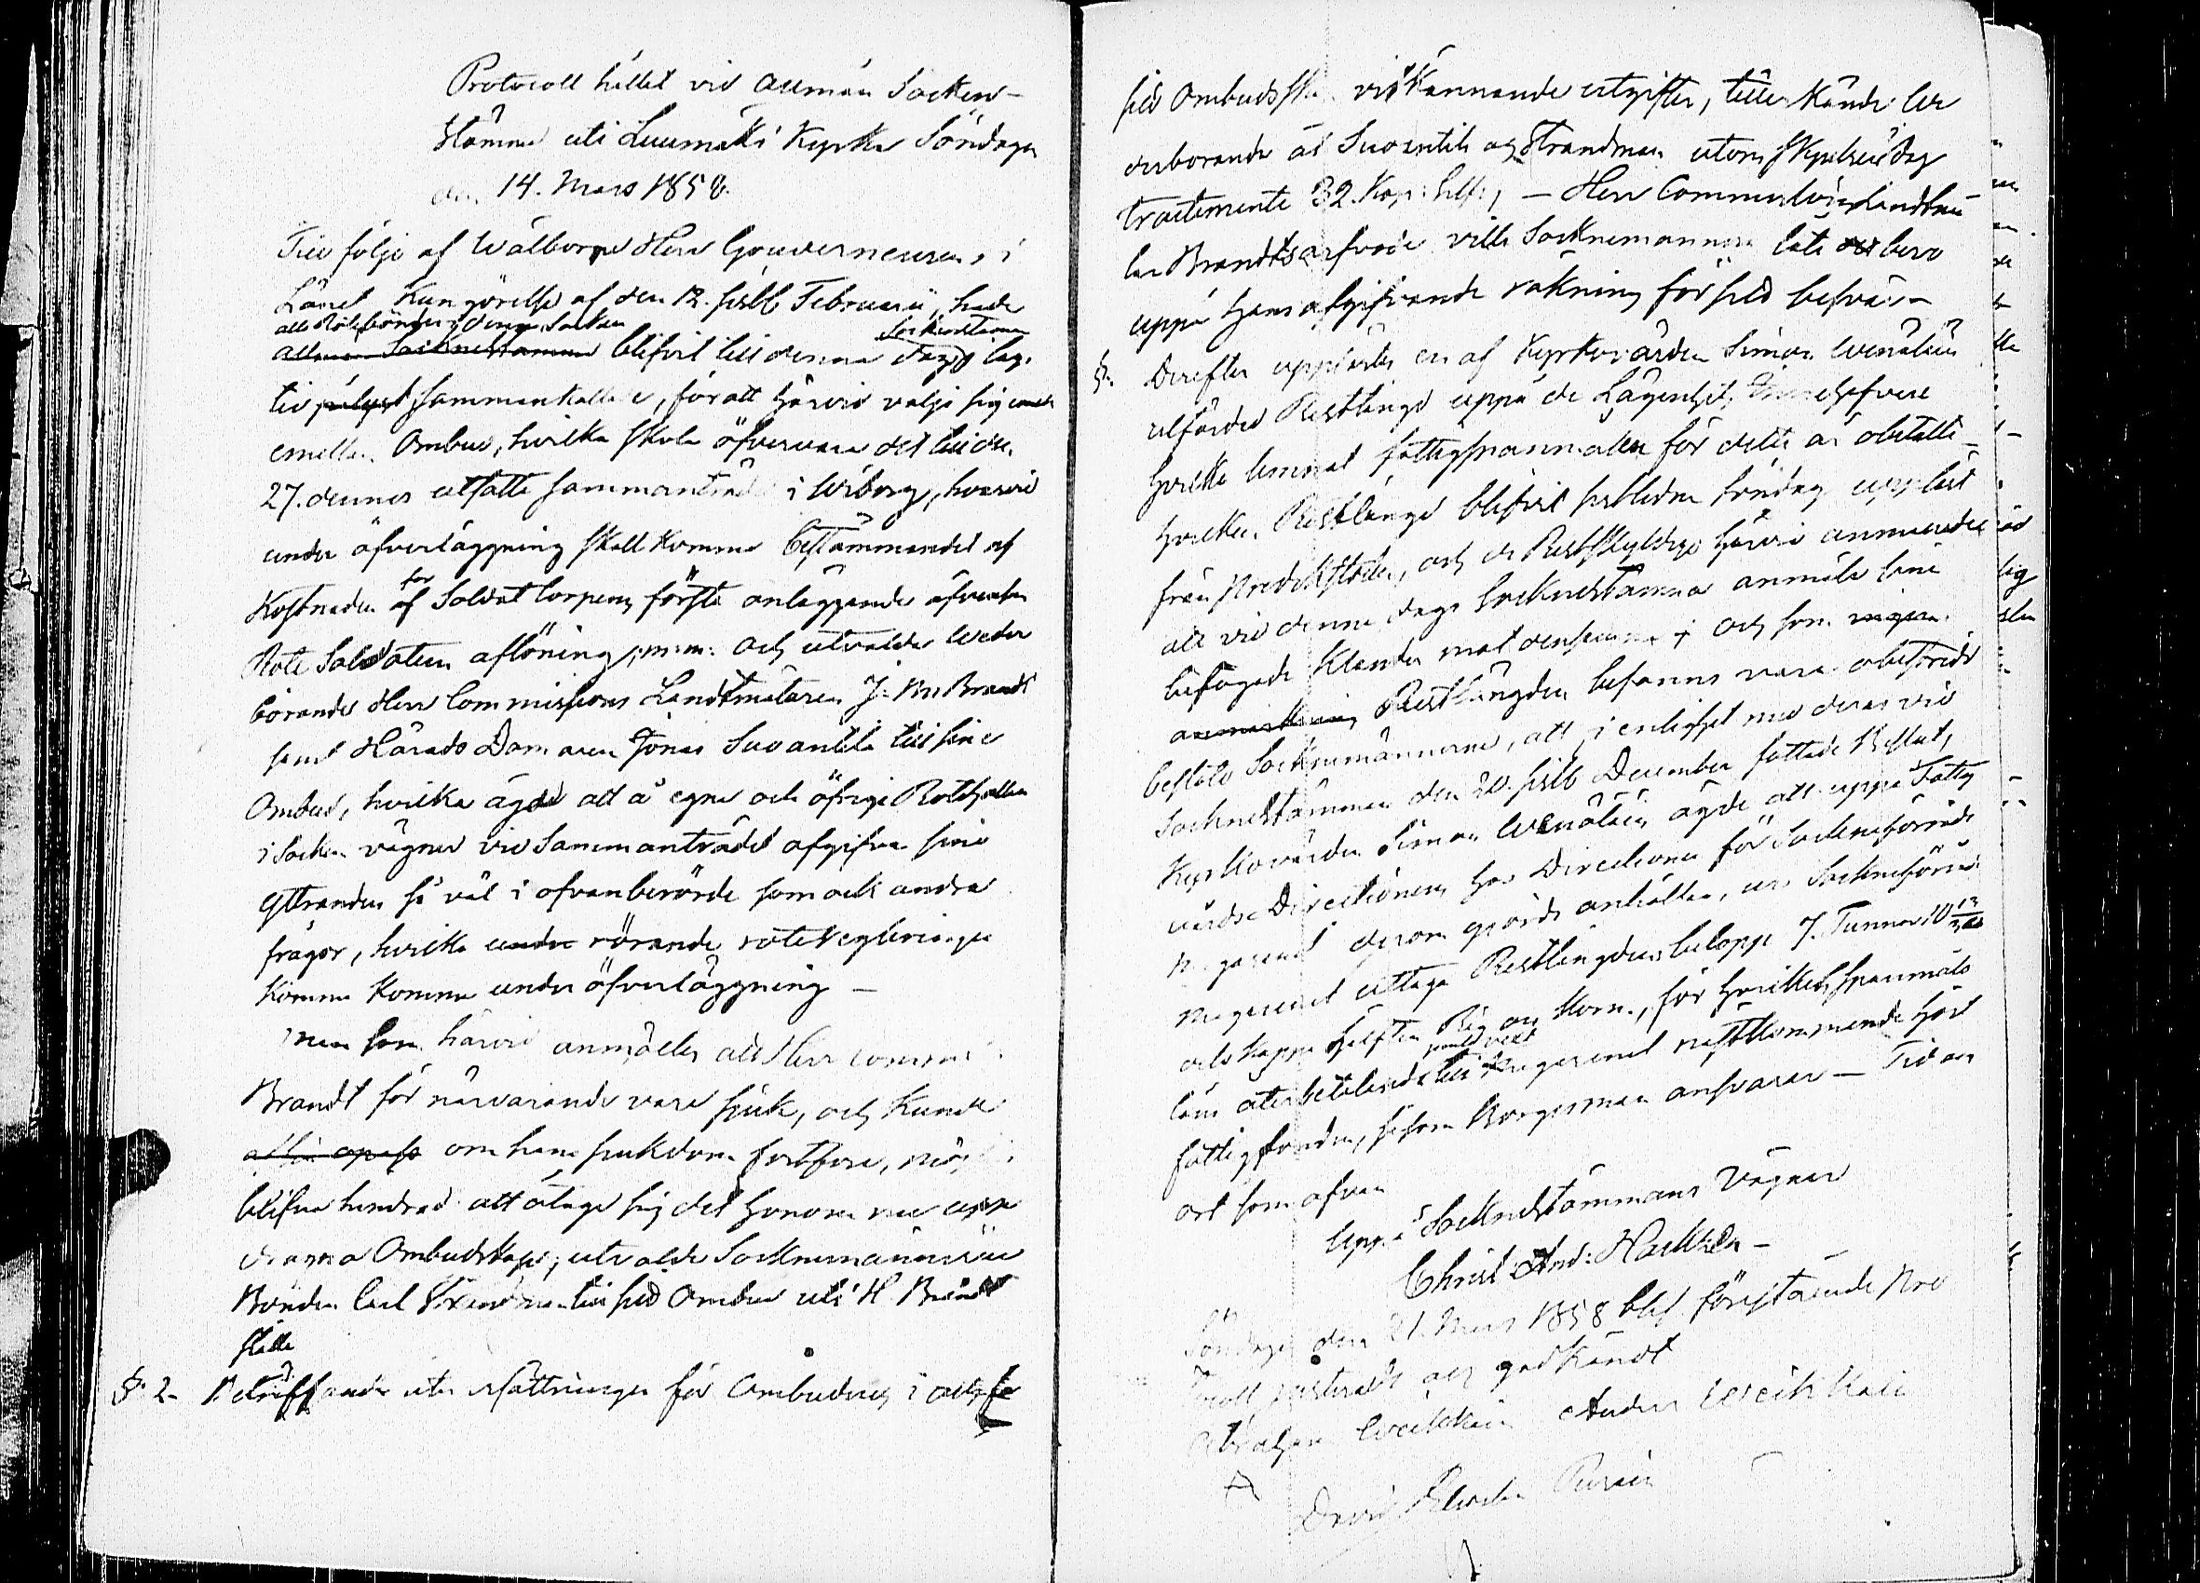 Protocoll hållet vid allmän Socken-
stämma uti Luumäki Kyrka Söndagen
den 14. Mars 1858.
Till följe af Wälborne Herr Gouverneurens i
Länet Kungörelse af den 12. sistl Februarii, hade
alla Rotebönder i denna Socken Socknestämma
allmän Socknestämma blifvit till denna dag lag-
tid pålyst sammankallade, för att härvid välja sig
emellan Ombud, hvilka skola öfvervara det till den
27. dennes utsatte sammanträde i Wiborg, hvarvid
under öfverläggning skall komma bestämmandet af
Kostnaden af för Soldat Torpens första anläggande äfvensom
Rote Soldatens aflöning m.m. och utvaldes veder
börande Herr Commissions Landtmätaren J. M. Brandt
samt Härads Domaren Jonas Suvantila till sine
Ombud, hvilka ägde att å egne och öfrige Rotehållare
i Socken vägnar vid Sammanträdet afgifva sine
yttranden så väl i ofvanberörde som ock andra
frågor, hvilka under rörande roteregleringen
komma komma under öfverläggning -
men som härvid anmältes att Herr Comm:
Brandt för närvarande vore sjuk, och kunde
om hans sjukdom fortfore, möjl.
blifva hindrad att åtaga sig det honom nu upp
dragna Ombudskap; utvalde Socknemännerne
Bonden Carl Strandman till sitt Ombud uti H. Brandts
ställe
§. 2. Beträffande ersättningen för Ombuden i och för
sitt Ombudskap vidkännande utgifter, tillerkände ve
derborande åt Suvantila och Strandman utom skjuts i dag
tractemente 82. Kop: Silf:, - Herr Commissions Landtmä
taren Brandts arfvode ville Socknemännerne låta bero
uppå hans afgifvande räkning för sitt besvär -
§. Derefter upplästes en af Kyrkovärden Simon Wenäläin
utfärdad Restlängd uppå de Lägenhets Innehafvare
hvilka lemnat fattigspannmålen för detta år obetalte
hvilken Restlängd blifvit sistledne söndag uppläst
från Predikstolen, och de Restskyldige härvid anmanade
att vid denna dags Socknestämma anmäla sine
befogade klander mot densamma; och som ingen
anmärkning Restlängden befanns vara obestridd
beslöto Socknemännerne, att i enlighet med deras vid
Socknestämman den 20. sistl December fattade Beslut,
Kyrkovärden Simon Wenäläin ägde att uppå Fattig
vårds Directionens hos Directionen för Sockneförråds
Magasinet derom gjorde anhållan, ur Sockneförråds
magasinet uttaga Restlängdens belopp 7. Tunnor 10
och kappe hälften Råg och Korn, för hvilket spannmåls
lån återbetalande till Magasinet nästkommande höst
fattigfonden, såsom Borgesman ansvarar - Tid och
ort som ofvan
Uppå Socknestämmans Vägnar
Christ: And: Hackzell -
Söndagen den 21. Mars 1858 blef förestående Pro
tocoll justeradt och godkändt
Abraham Weikkain Anders Weikkali
David